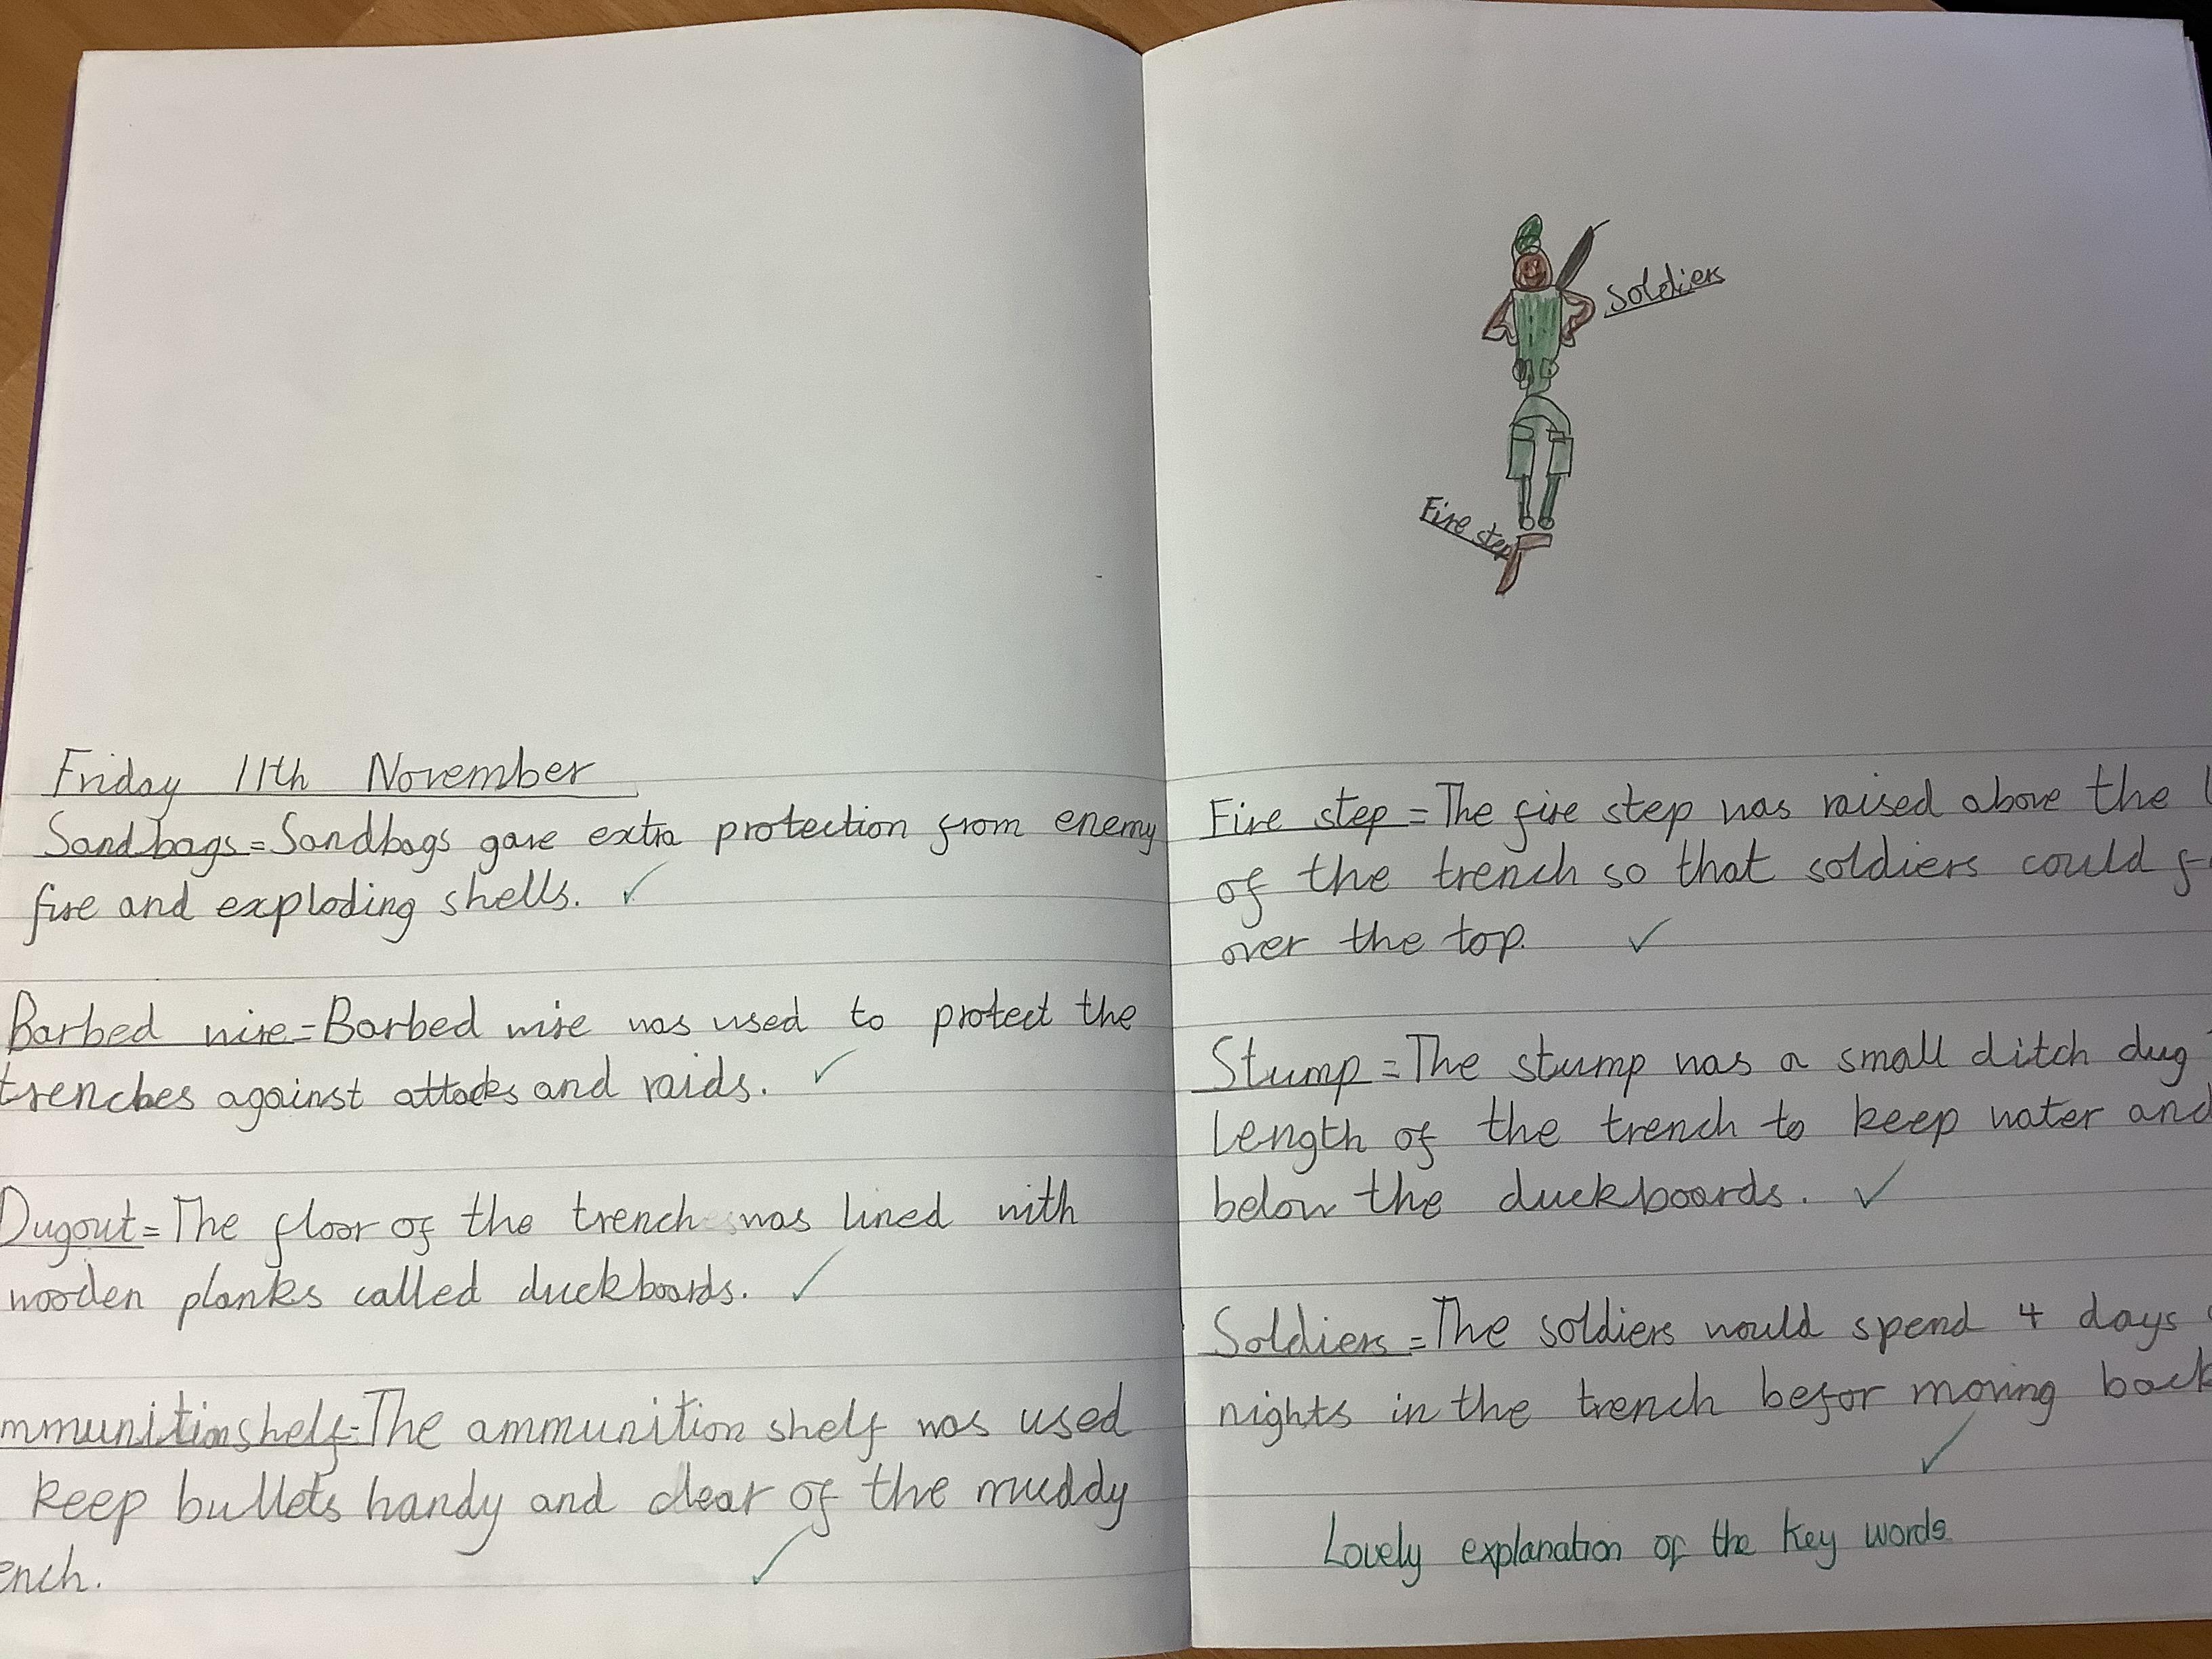 Friday 11th November
Sandbags = Sandbags gave extra protection from enemy
fire and exploding shells.
Barbed wire = Barbed wire was used to protect the
trenches against attacks and raids.
Dugout = The floor of the trench was lined with
wooden planks called duckboards.
mmunition shelf = The ammunition shelf was used
keep bullets handy and clear of the muddy
ench.
Soldiers
Fire step
Fire step = The fire step was raised above the
of the trench so that soldiers could
over the top.
Stump = The stump was a small ditch dug
length of the trench to keep water and
below the duckboards.
Soldiers = The soldiers would spend 4 days
nights in the trench befor moving back
Lovely explanation of the key words